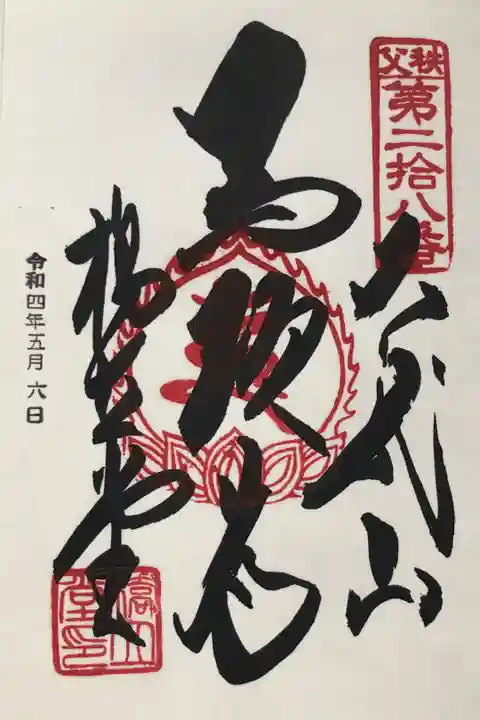 秩父
第二拾八番
石龍山
馬頭尊
橋立堂
橋立堂印
令和四年五月六日